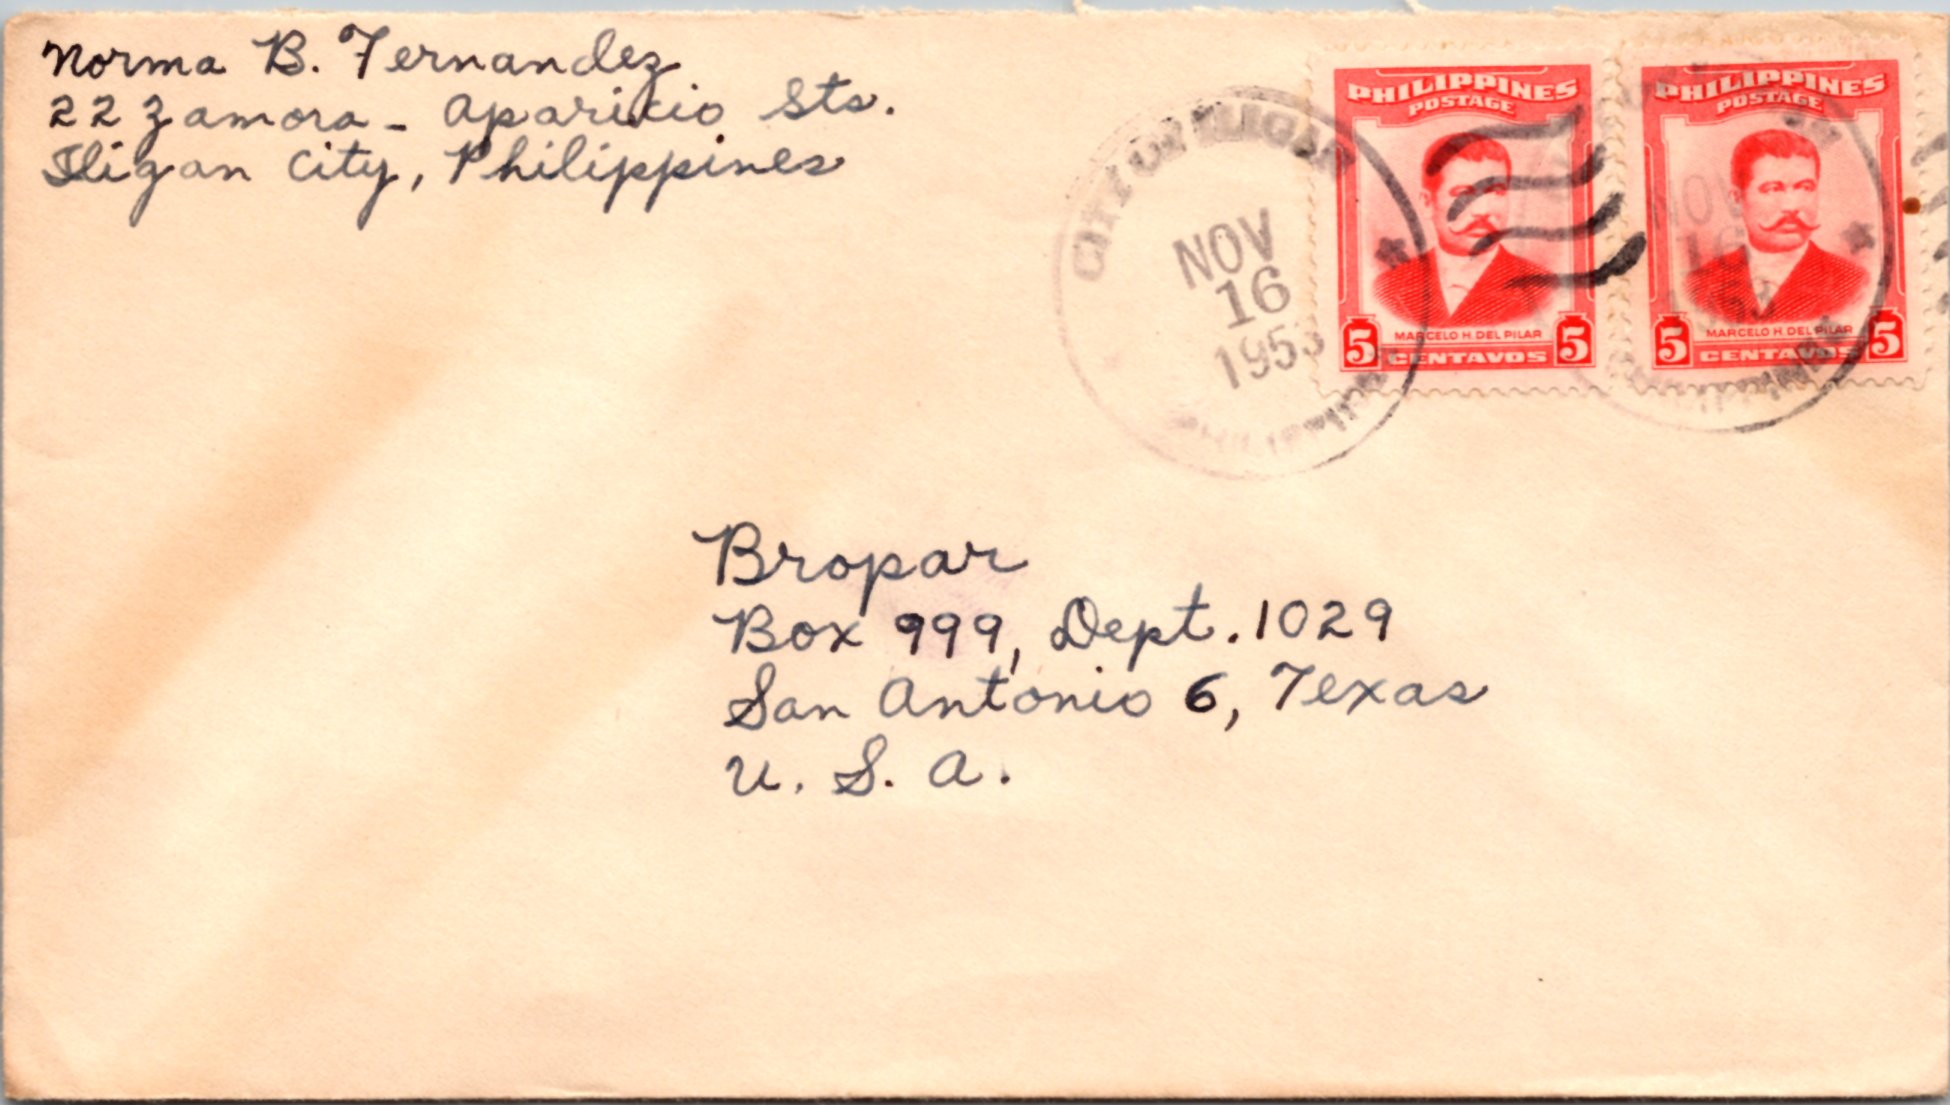 Norma B. Fernandez
22 Zamora - Aparicio Sts.
Iligan City, Philippines
CITY OF ILIGAN
NOV
16
1953
PHILIPPINES
PHILIPPINES
POSTAGE
MARCELO H. DEL PILAR
5 CENTAVOS 5
PHILIPPINES
POSTAGE
MARCELO H. DEL PILAR
5 CENTAVOS 5
NOV
16
Bropar
Box 999, Dept. 1029
San Antonio 6, Texas
U. S. A.